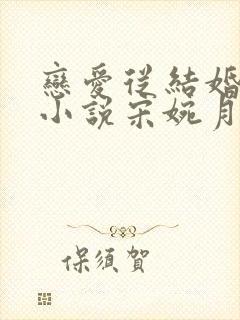 戀愛從結婚
小說宋婉月
保須賀